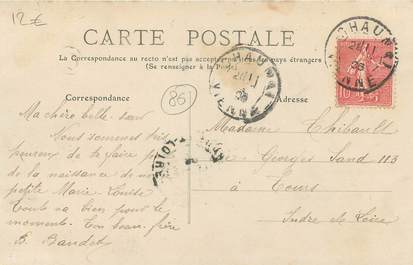 12€
CARTE POSTALE
La Correspondance au recto n'est pas acceptée par tous les pays étrangers
(Se renseigner à la Poste)
Correspondance
Adresse
86
Ma chère belle sœur
Nous sommes très
heureux de te faire part
de la naissance de ma
petite Marie Louise
Toute va bien pour le
moment. Ton beau-frère
B. Baudet
Madame Thibault
Rue Georges Sand 113
à Tours
Indre et Loire
VIENNE